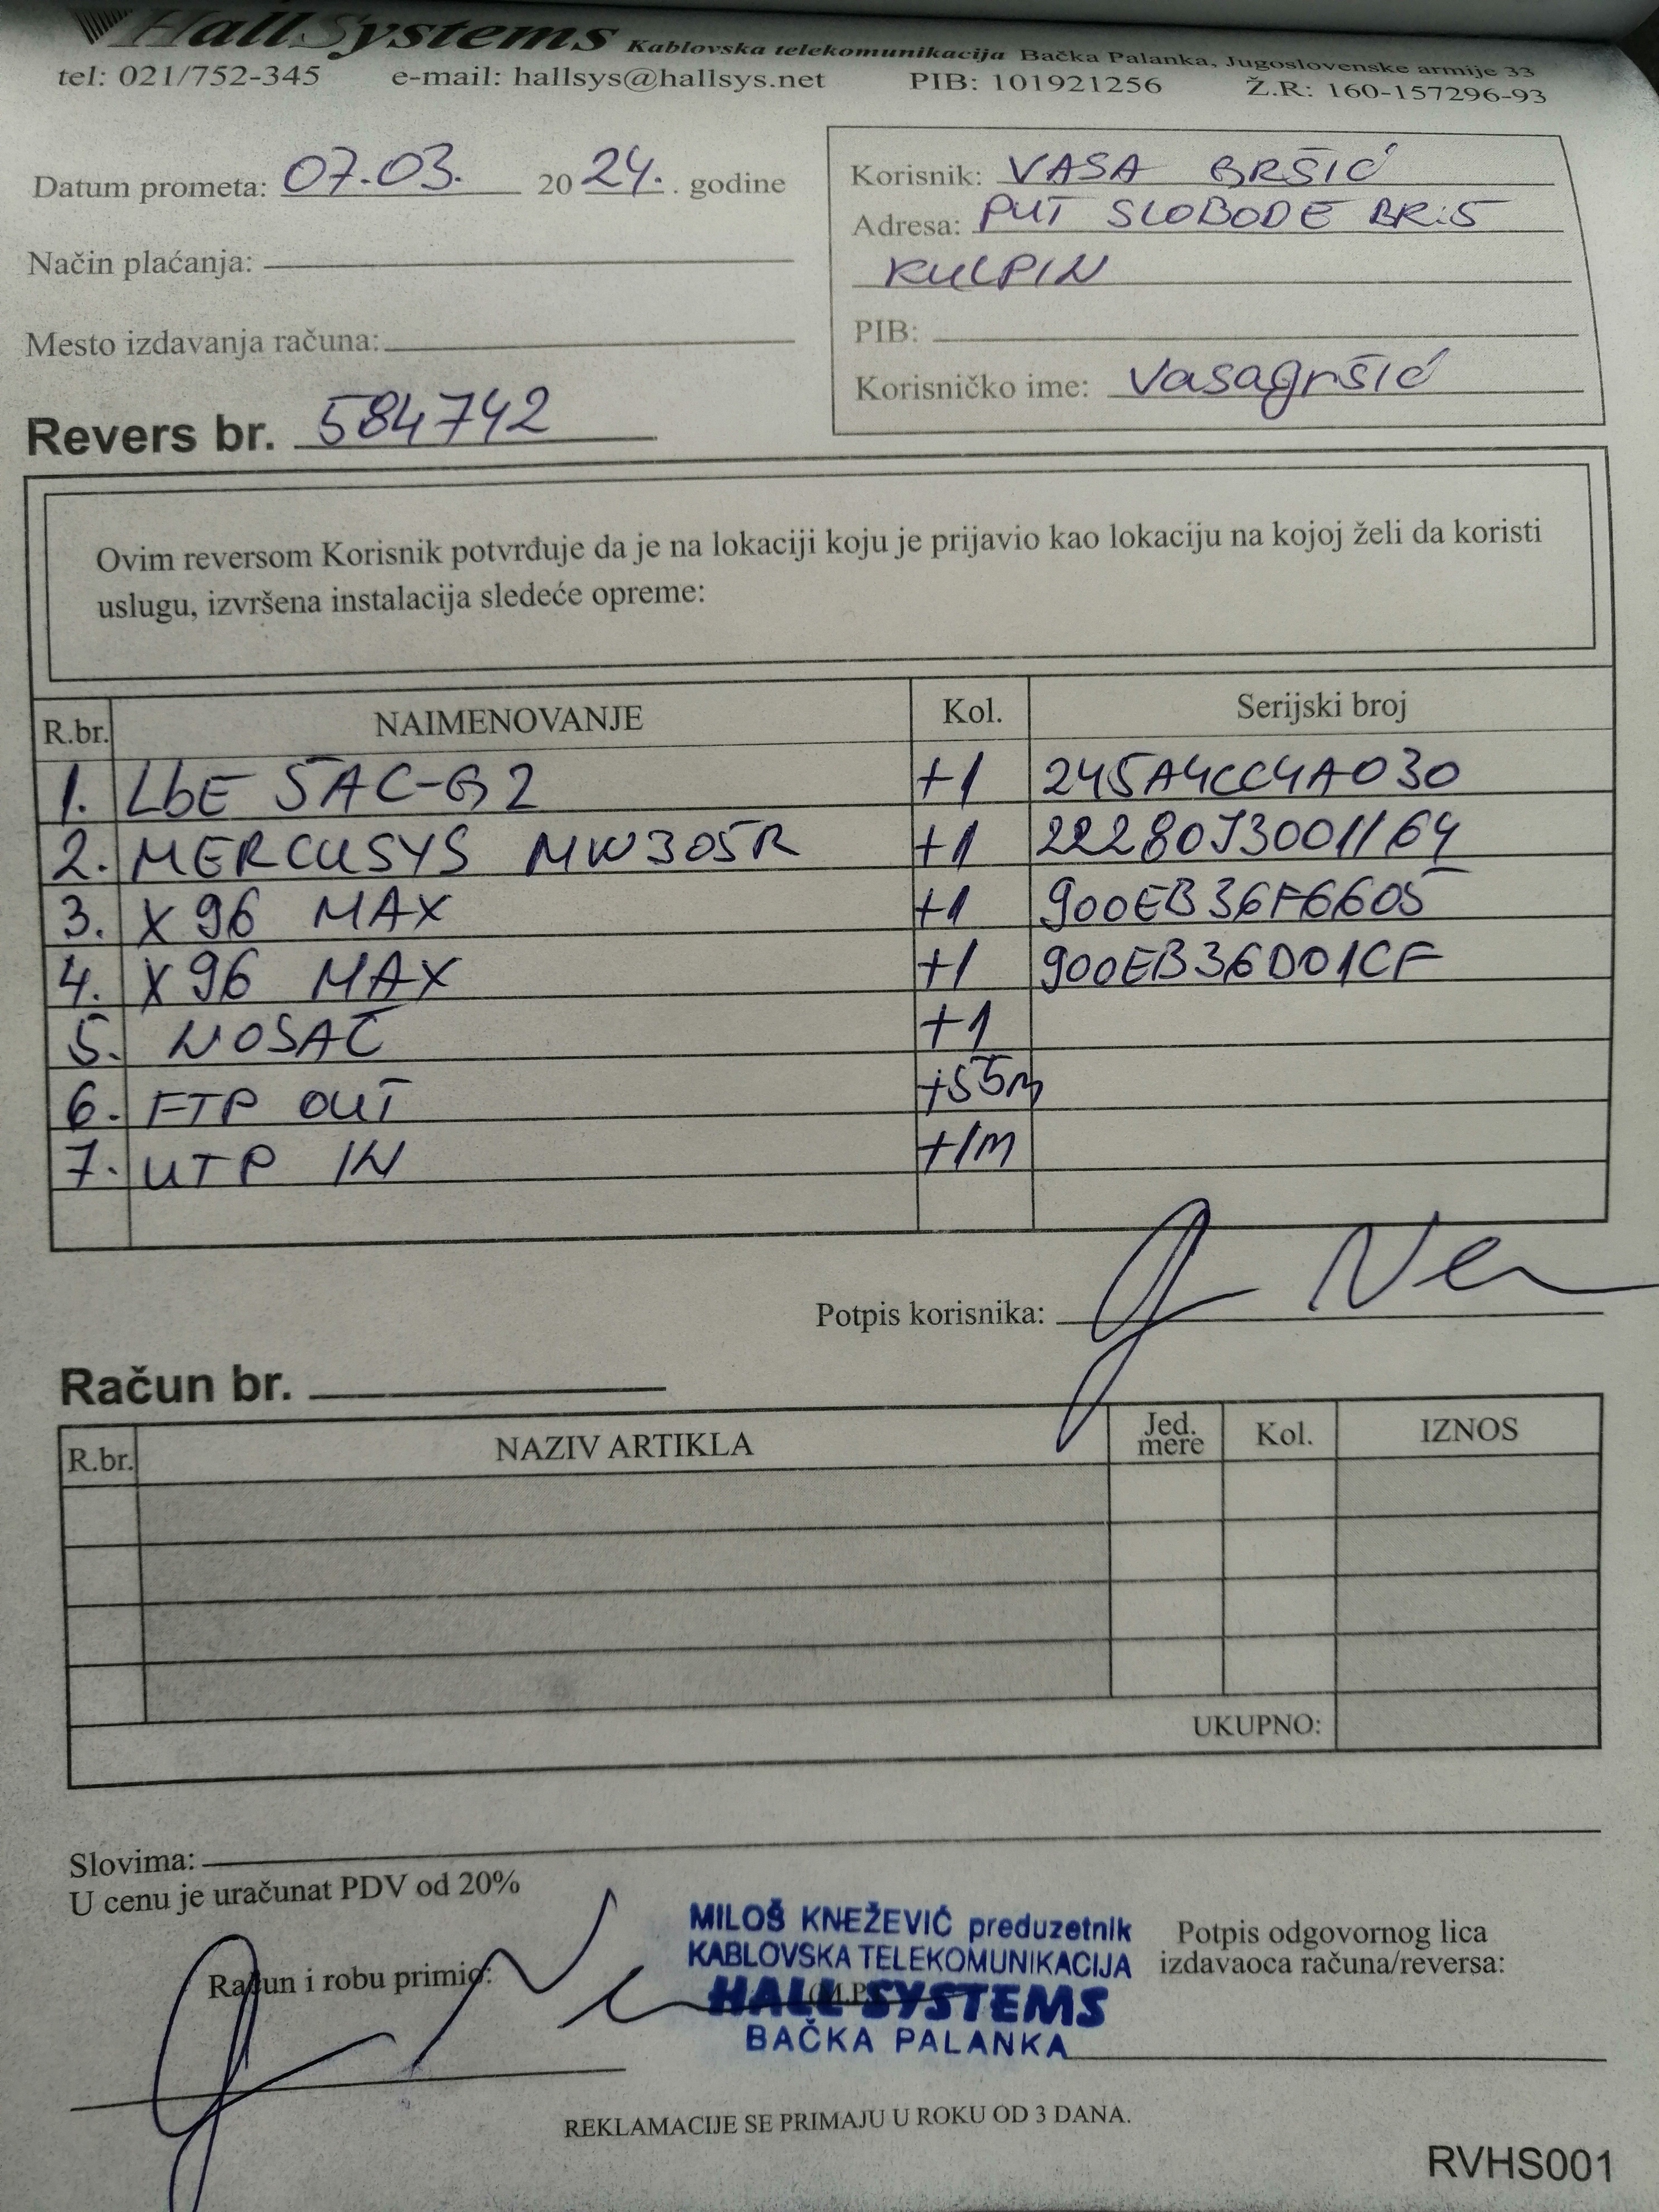 HallSystems Kablovska telekomunikacija Bačka Palanka, Jugoslovenske armije 33
tel: 021/752-345 e-mail: hallsys@hallsys.net PIB: 101921256 Ž.R: 160-157296-93
Datum prometa: 07.03. 2024. . godine
Način plaćanja:
Mesto izdavanja računa:
Revers br. 584742
Korisnik: VASA GRŠIĆ
Adresa: PUT SLOBODE BR:5
KULPIN
PIB:
Korisničko ime: vasagršić
Ovim reversom Korisnik potvrđuje da je na lokaciji koju je prijavio kao lokaciju na kojoj želi da koristi
uslugu, izvršena instalacija sledeće opreme:
R.br. NAIMENOVANJE Kol. Serijski broj
1. LbE 5AC-G2 +1 245A4CC4A030
2. MERCUSYS MW305R +1 22280J3001164
3. X96 MAX +1 900EB36F6605
4. X96 MAX +1 900EB36D01CF
5. NOSAČ +1
6. FTP OUT +55m
7. UTP IN +1M
Potpis korisnika:
Račun br.
R.br. NAZIV ARTIKLA Jed. mere Kol. IZNOS
UKUPNO:
Slovima:
U cenu je uračunat PDV od 20%
Račun i robu primio:
MILOŠ KNEŽEVIĆ preduzetnik
KABLOVSKA TELEKOMUNIKACIJA
HALL SYSTEMS
BAČKA PALANKA
Potpis odgovornog lica
izdavaoca računa/reversa:
REKLAMACIJE SE PRIMAJU U ROKU OD 3 DANA.
RVHS001